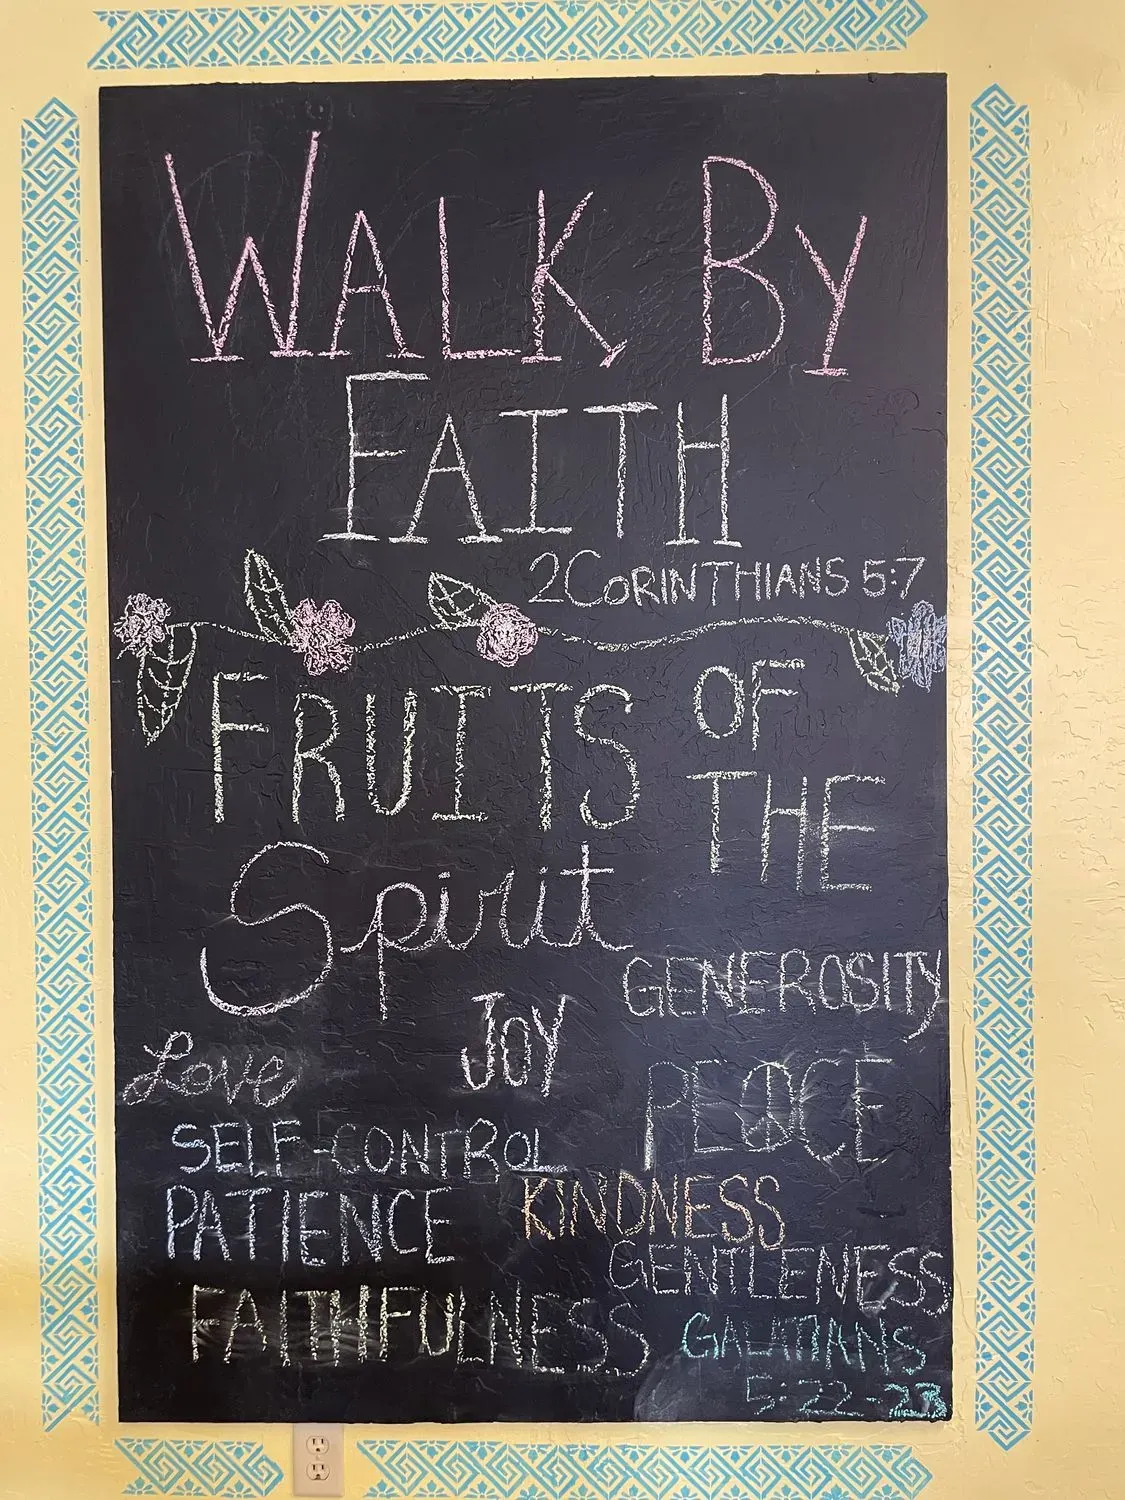 WALK BY
FAITH
2CORINTHIANS 5:7
FRUITS OF
THE
Spirit
GENEROSITY
JOY
Love
PEACE
SELF-CONTROL
PATIENCE
KINDNESS
GENTLENESS
FAITHFULNESS
GALATIANS
5:22-23